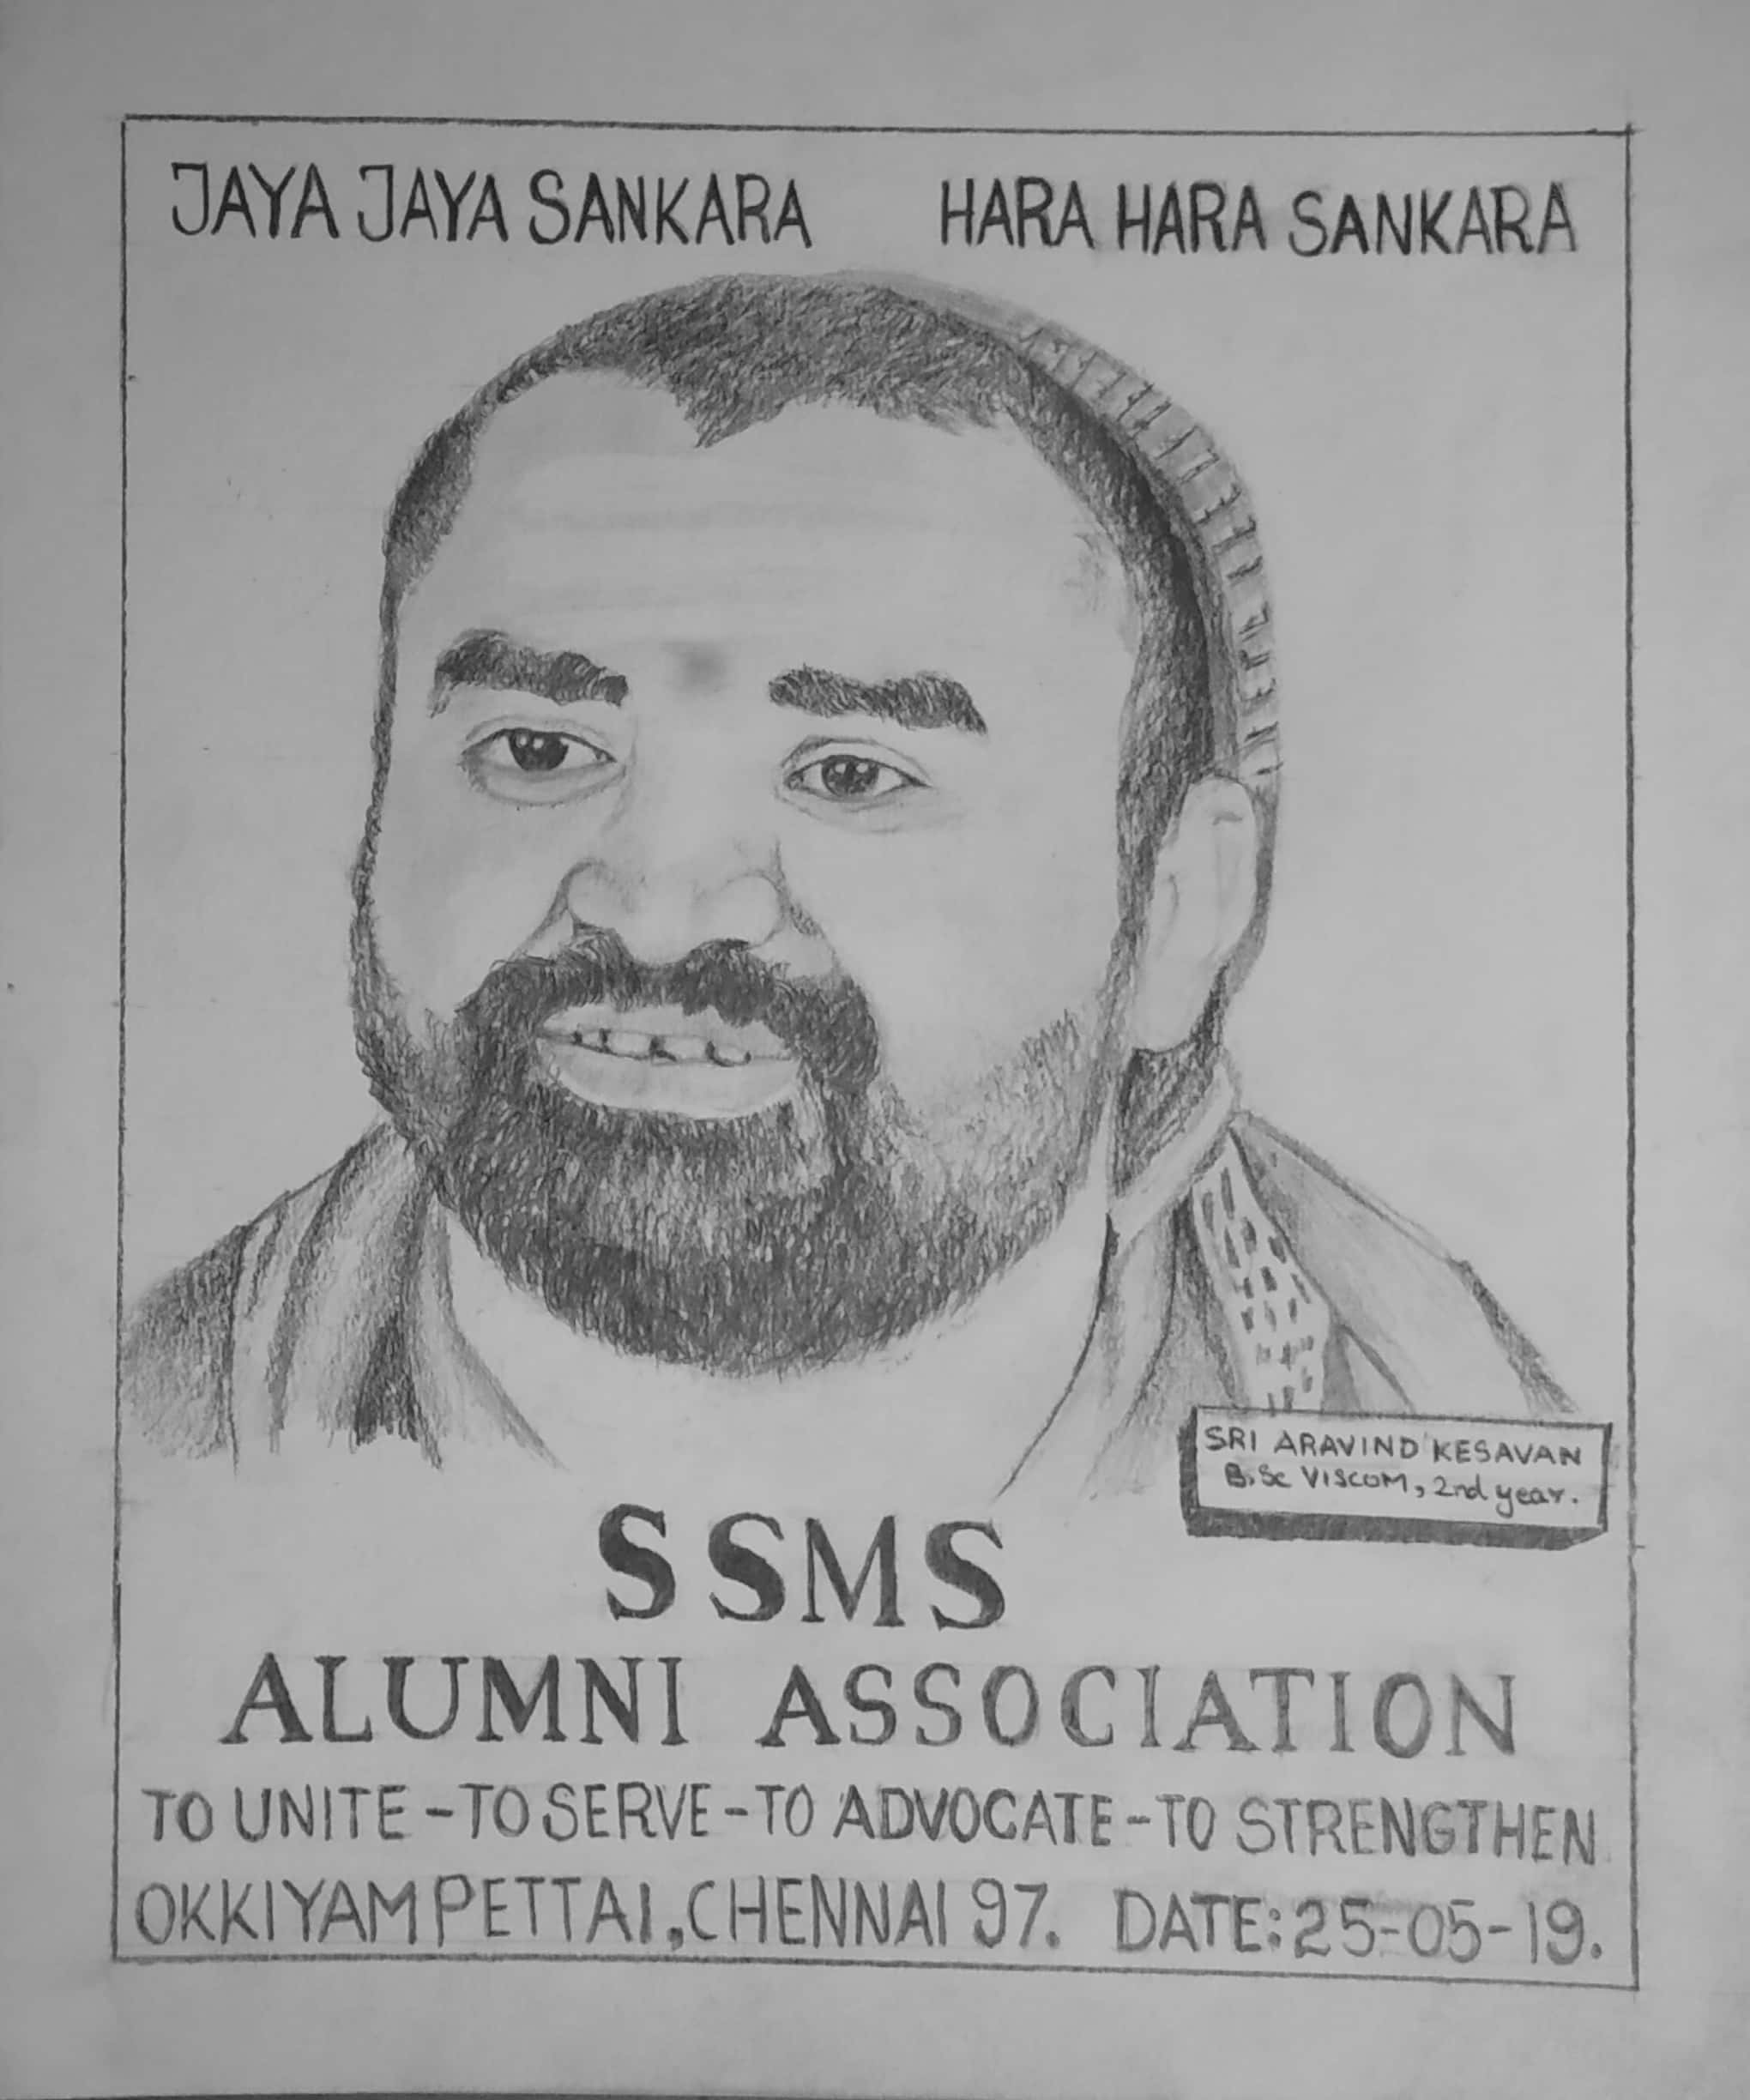 JAYA JAYA SANKARA HARA HARA SANKARA
SRI ARAVIND KESAVAN
B.Sc VISCOM, 2nd year.
SSMS
ALUMNI ASSOCIATION
TO UNITE - TO SERVE - TO ADVOCATE - TO STRENGTHEN
OKKIYAMPETTAI, CHENNAI 97. DATE: 25-05-19.